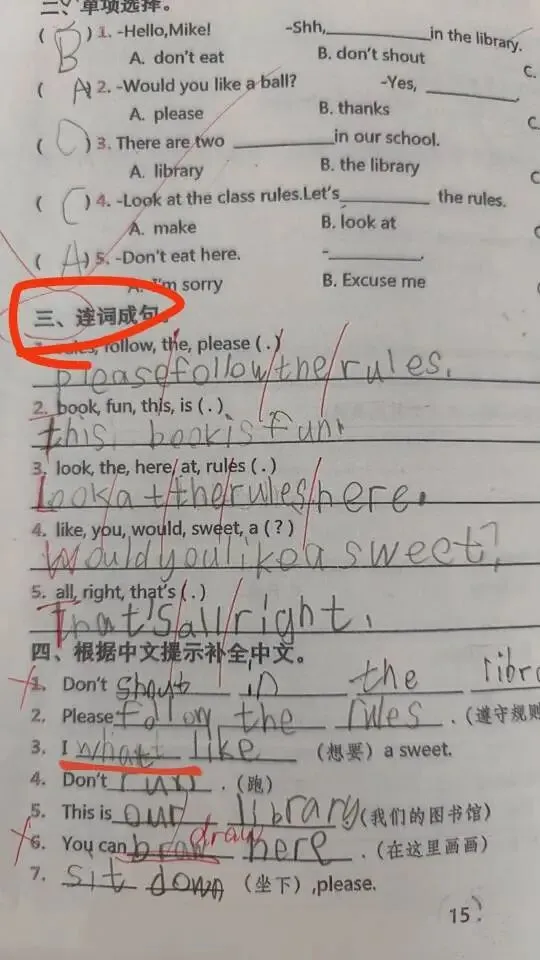 二、单项选择。
( B ) 1. -Hello,Mike! -Shh,__________in the library.
A. don't eat B. don't shout C.
( A ) 2. -Would you like a ball? -Yes, __________.
A. please B. thanks C.
( C ) 3. There are two __________in our school.
A. library B. the library C
( C ) 4. -Look at the class rules.Let's__________ the rules.
A. make B. look at C
( A ) 5. -Don't eat here. -__________.
A. I'm sorry B. Excuse me
三、连词成句。
1. rules, follow, the, please ( . )
please follow the rules.
2. book, fun, this, is ( . )
this book is fun
3. look, the, here, at, rules ( . )
Look at the rules here.
4. like, you, would, sweet, a ( ? )
Would you like a sweet?
5. all, right, that's ( . )
That's all right.
四、根据中文提示补全中文。
1. Don't shout in the libra
2. Please follow the rules . (遵守规则
3. I what like (想要) a sweet.
4. Don't run . (跑)
5. This is our library (我们的图书馆)
draw
6. You can braw here . (在这里画画)
7. sit down (坐下) ,please.
15